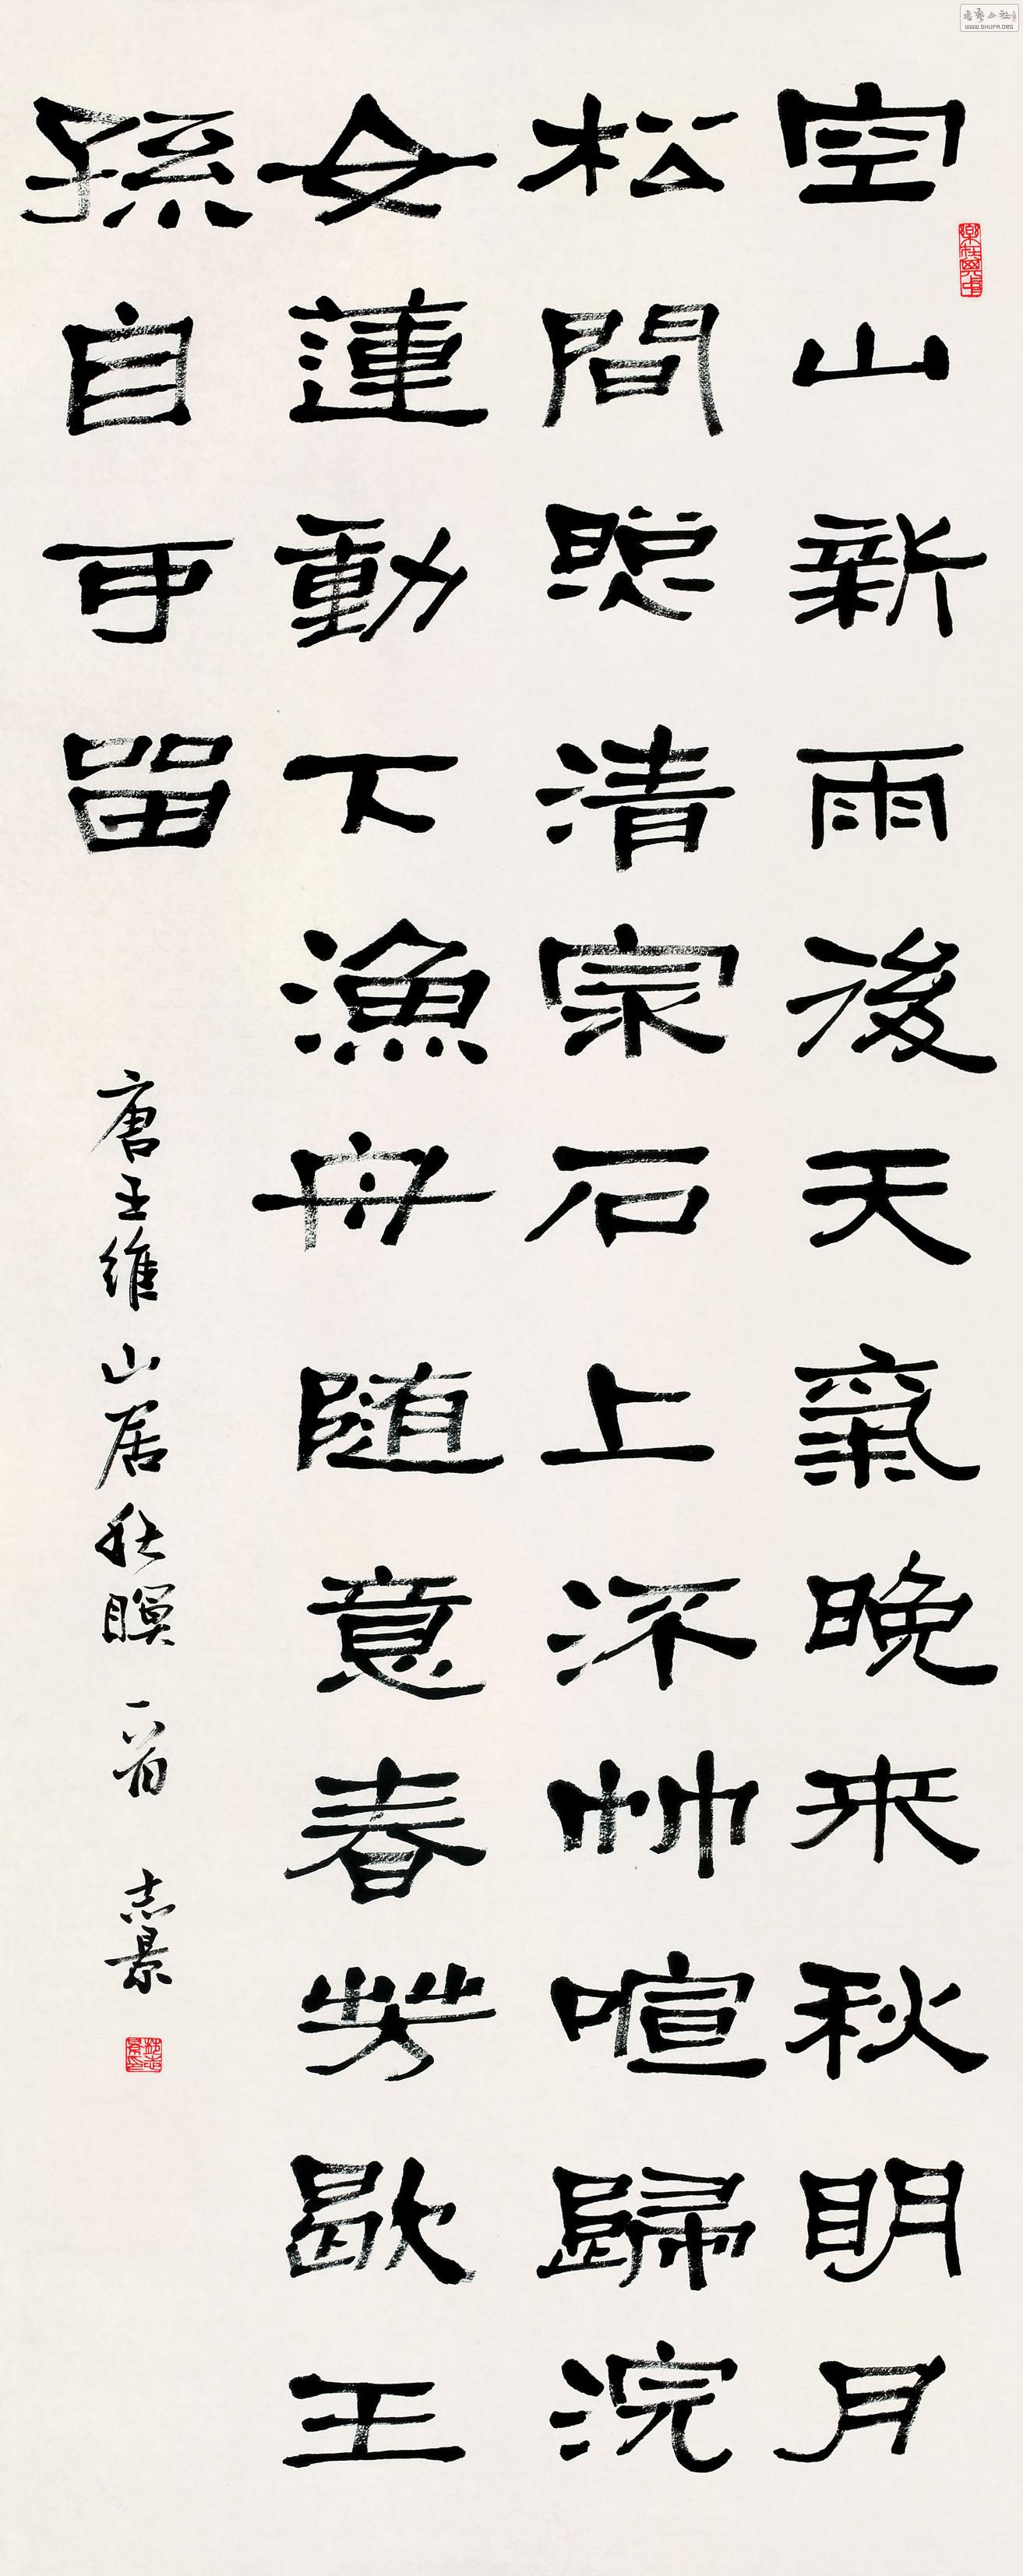 空山新雨後天氣晚来秋眀月
松間照清泉石上流竹喧歸浣
女蓮動下漁舟随意春芳歇王
孫自可留
唐王維山居秋瞑一首 志景
WWW.SHUFA.ORG